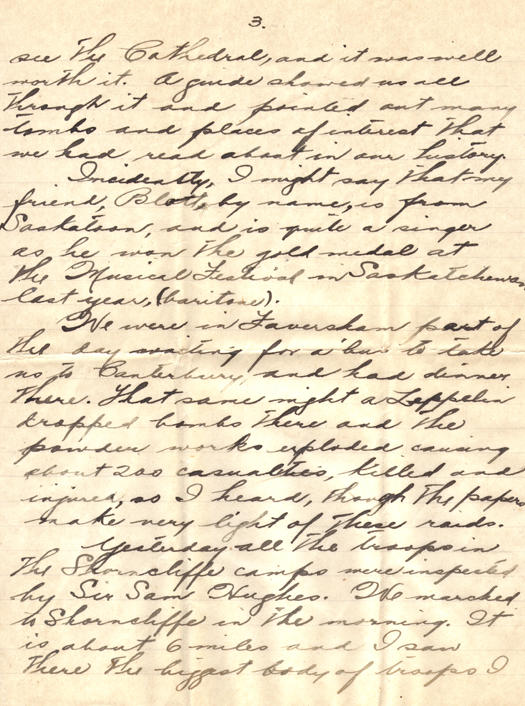 3.
see the Cathedral, and it was well
worth it. A guide showed us all
through it and pointed out many
tombs and places of interest that
we had read about in our history.
Incidently, I might say that my
friend, by name, is from
Saskatoon, and is quite a singer
as he won the gold medal at
the Musical Festival in Saskatchewan
last year, (baritone).
We were in Faversham part of
the day waiting for a bus to take
us to Canterbury, and had dinner
there. That same night a Zeppelin
dropped bombs there and the
powder works exploded causing
about 200 casualties, killed and
injured, so I heard, though the papers
make very light of these raids.
Yesterday all the troops in
the Shorncliffe camps were inspected
by Sir Sam Hughes. We marched
to Shorncliffe in the morning. It
is about 6 miles and I saw
there the biggest body of troops I